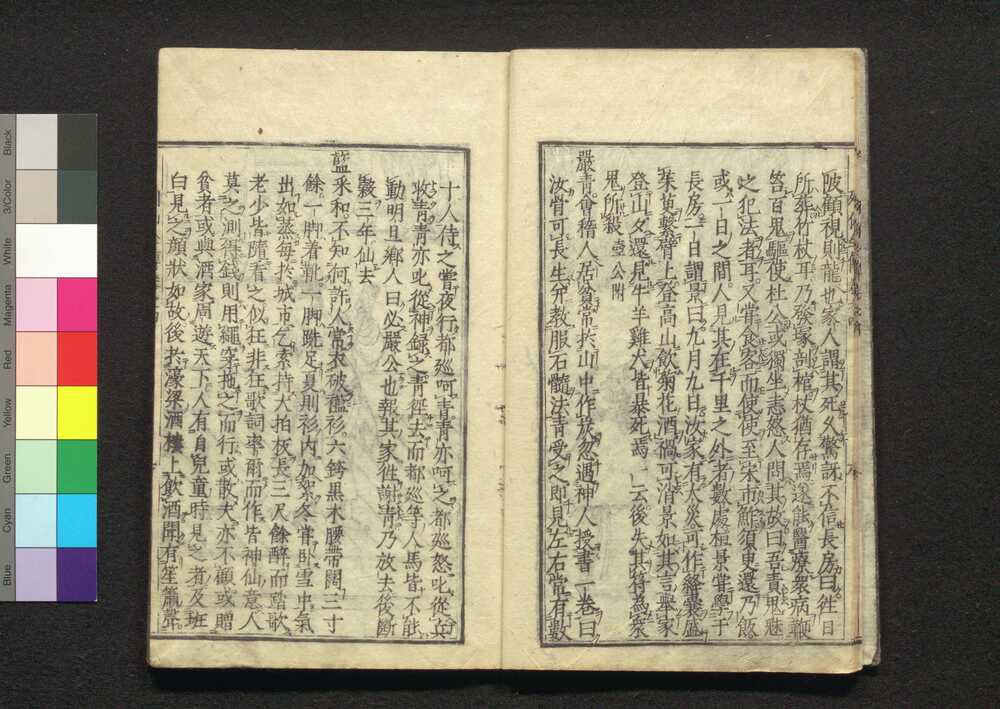 陂顧視則龍也家人謂其死久驚訝不信長房曰徃日
所葬竹杖耳乃發冢剖棺杖猶存焉遂能醫療衆病鞭
笞百鬼驅使社公或獨坐恚怒人問其故曰吾責鬼魅
之犯法者耳又嘗食客而使使至宋市鮓須臾還乃飲
或一日之間人見其在千里之外者數處桓景嘗學于
長房一日謂景曰九月九日汝家有大災可作絳囊盛
茱萸繫臂上登高山飲菊花酒禍可消景如其言舉家
登山夕還見牛羊雞犬皆暴死焉一云後失其符為衆
鬼所殺 壺公附
嚴青會稽人居貧常於山中作炭忽遇神人授書一卷曰
汝骨可長生并教服石髓法青受之即見左右常有數
十人侍之嘗夜行都廵呵青青亦呵之都廵怒叱從兵
收青青亦叱從神録之青徑去而都廵等人馬皆不能
動明旦鄉人曰必嚴公也報其家徃謝青乃放去後斷
穀三年仙去
藍采和不知何許人常衣破襤衫六銙黒木腰帶闊三寸
餘一脚着靴一脚跣足夏則衫内加絮冬常卧雪中氣
出如蒸每於城市乞索持大拍板長三尺餘醉而踏歌
老少皆隨看之似狂非狂歌詞率爾而作皆神仙意人
莫之測得錢則用繩穿拖之而行或散失亦不顧或贈
貧者或與酒家周遊天下人有自兒童時見之者及班
白見之顔狀如故後於濠梁酒樓上飲酒聞有笙簫聲
Black
3/Color
White
Magenta
Red
Yellow
Green
Cyan
Blue